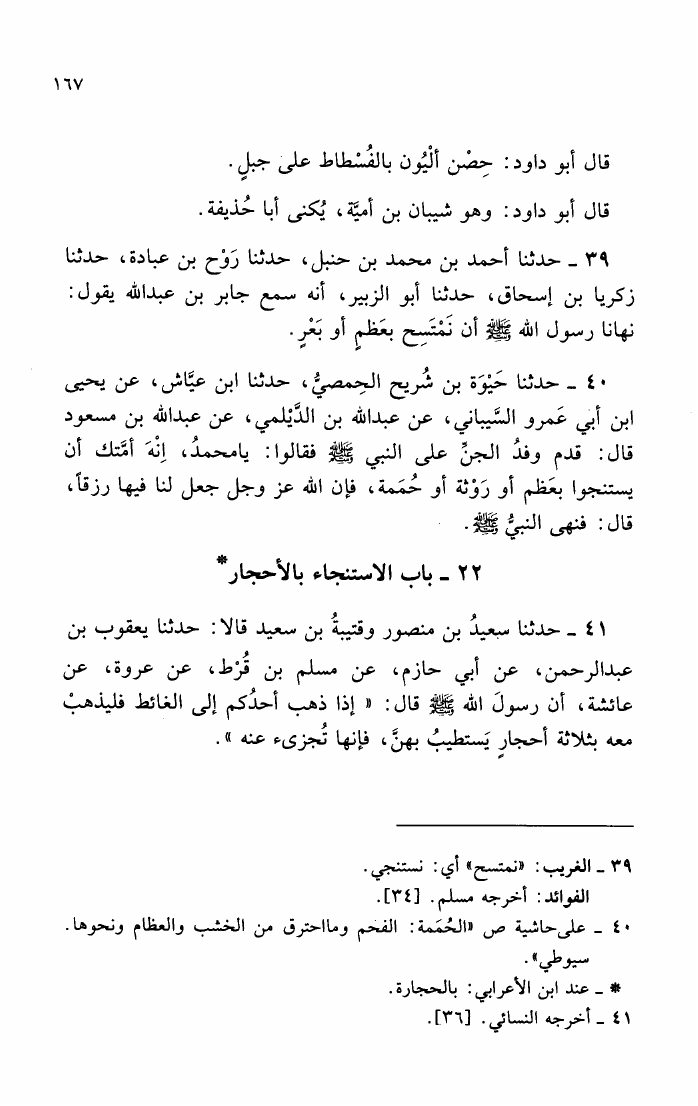 ١٦٧
قال أبو داود: حِصْن أَلْيُون بالفُسْطاط على جبلٍ.
قال أبو داود: وهو شيبان بن أميَّة، يُكنى أبا حُذيفة.
٣٩ ـ حدثنا أحمد بن محمد بن حنبل، حدثنا رَوْح بن عبادة، حدثنا
زكريا بن إسحاق، حدثنا أبو الزبير، أنه سمع جابر بن عبدالله يقول:
نهانا رسول الله ﷺ أن نَمْتَسِح بعَظمٍ أو بَعْرٍ.
٤٠ ـ حدثنا حَيْوَة بن شُريح الحِمصيُّ، حدثنا ابن عيَّاش، عن يحيى
ابن أبي عَمرو السَّيباني، عن عبدالله بن الدَّيْلمي، عن عبدالله بن مسعود
قال: قدم وفدُ الجنِّ على النبي ﷺ فقالوا: يامحمدُ، اِنْهَ أمَّتك أن
يستنجوا بعَظم أو رَوْثة أو حُمَمة، فإن الله عز وجل جعل لنا فيها رزقاً،
قال: فنهى النبيُّ ﷺ.
٢٢ ـ باب الاستنجاء بالأحجار*
٤١ ـ حدثنا سعيدُ بن منصور وقتيبةُ بن سعيد قالا: حدثنا يعقوب بن
عبدالرحمن، عن أبي حازم، عن مسلم بن قُرْط، عن عروة، عن
عائشة، أن رسولَ الله ﷺ قال: « إذا ذهب أحدُكم إلى الغائط فليذهبْ
معه بثلاثة أحجارٍ يَستطيبُ بهنَّ، فإنها تُجزىء عنه ».
٣٩ ـ الغريب: «نمتسح» أي: نستنجي.
الفوائد: أخرجه مسلم. [٣٤].
٤٠ ـ على حاشية ص «الحُمَمة: الفحم ومااحترق من الخشب والعظام ونحوها.
سيوطي».
* ـ عند ابن الأعرابي: بالحجارة.
٤١ ـ أخرجه النسائي. [٣٦].